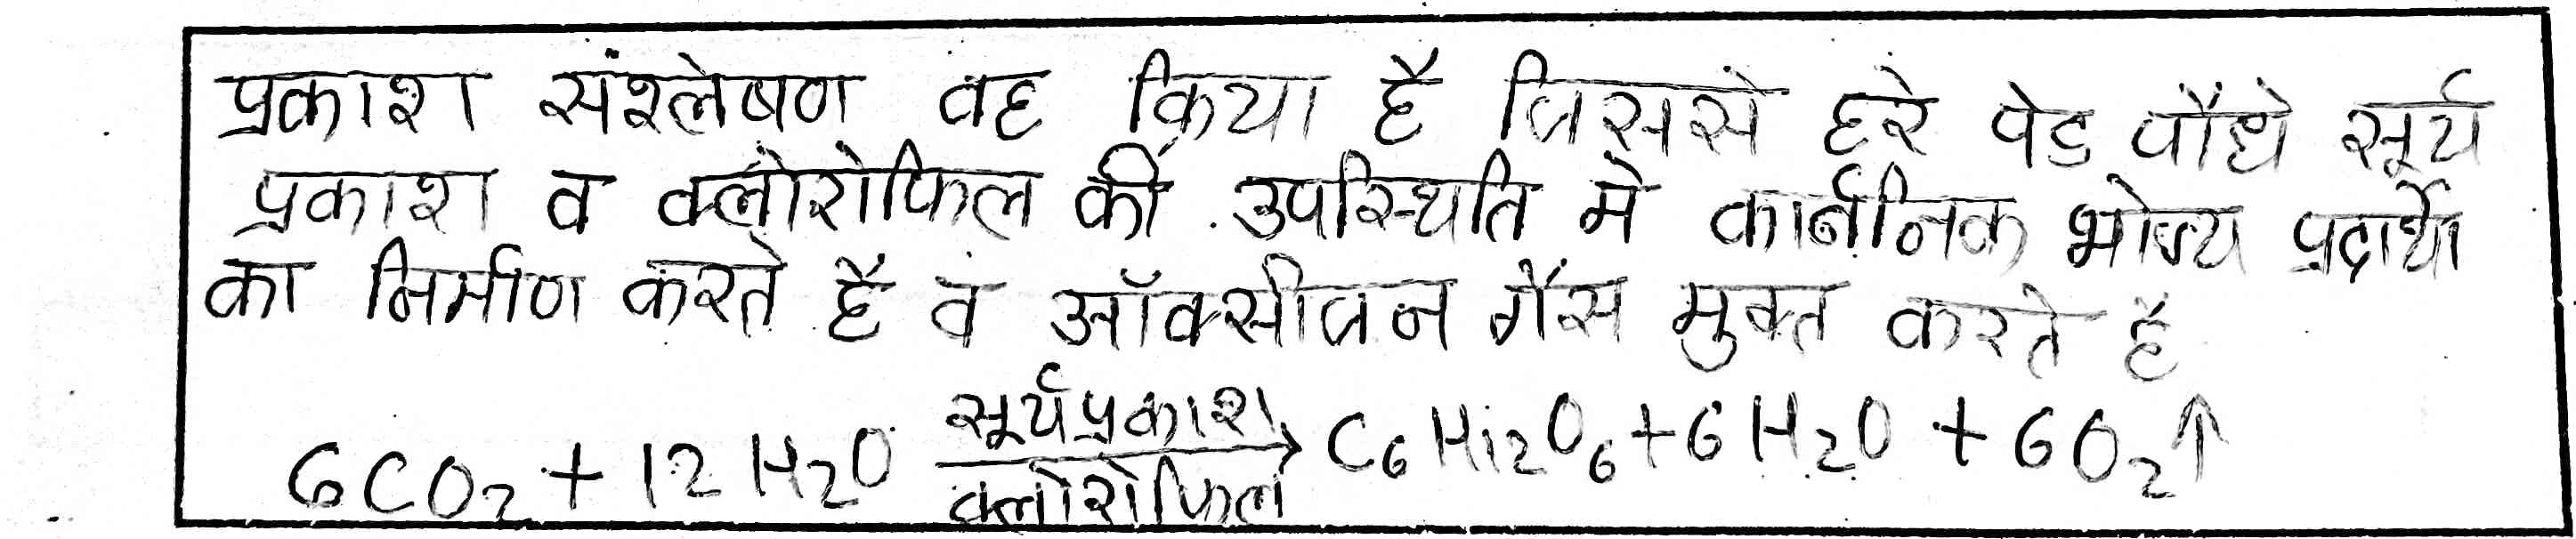 प्रकाश संश्लेषण वह क्रिया है जिससे हरे पेड पौधे सूर्य
प्रकाश व क्लोरोफिल की उपस्थिति मे कार्बनिक भोज्य प्रदार्थो
का निर्माण करते है व ऑक्सीजन गैस मुक्त करते है
6CO₂ + 12H₂O सूर्यप्रकाश/क्लोरोफिल→ C₆H₁₂O₆ + 6H₂O + 6O₂↑